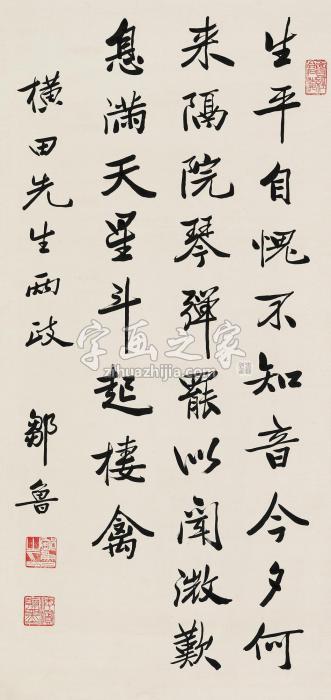 生平自愧不知音今夕何
来隔院琴弹罢似闻微歎
息满天星斗起棲禽
横田先生两政
鄒魯
字画之家
zihuazhijia.com